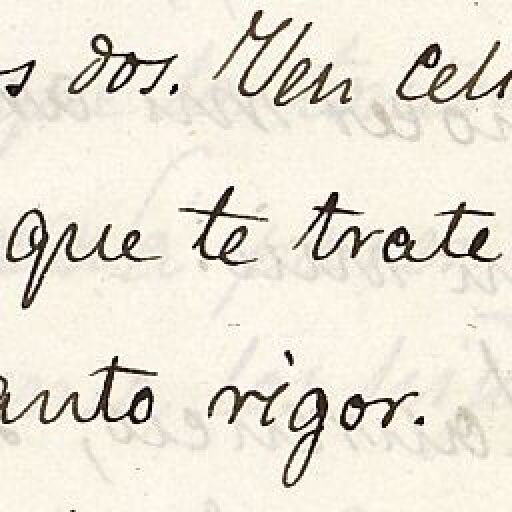 s dos. Ven cel
que te trate
anto rigor.